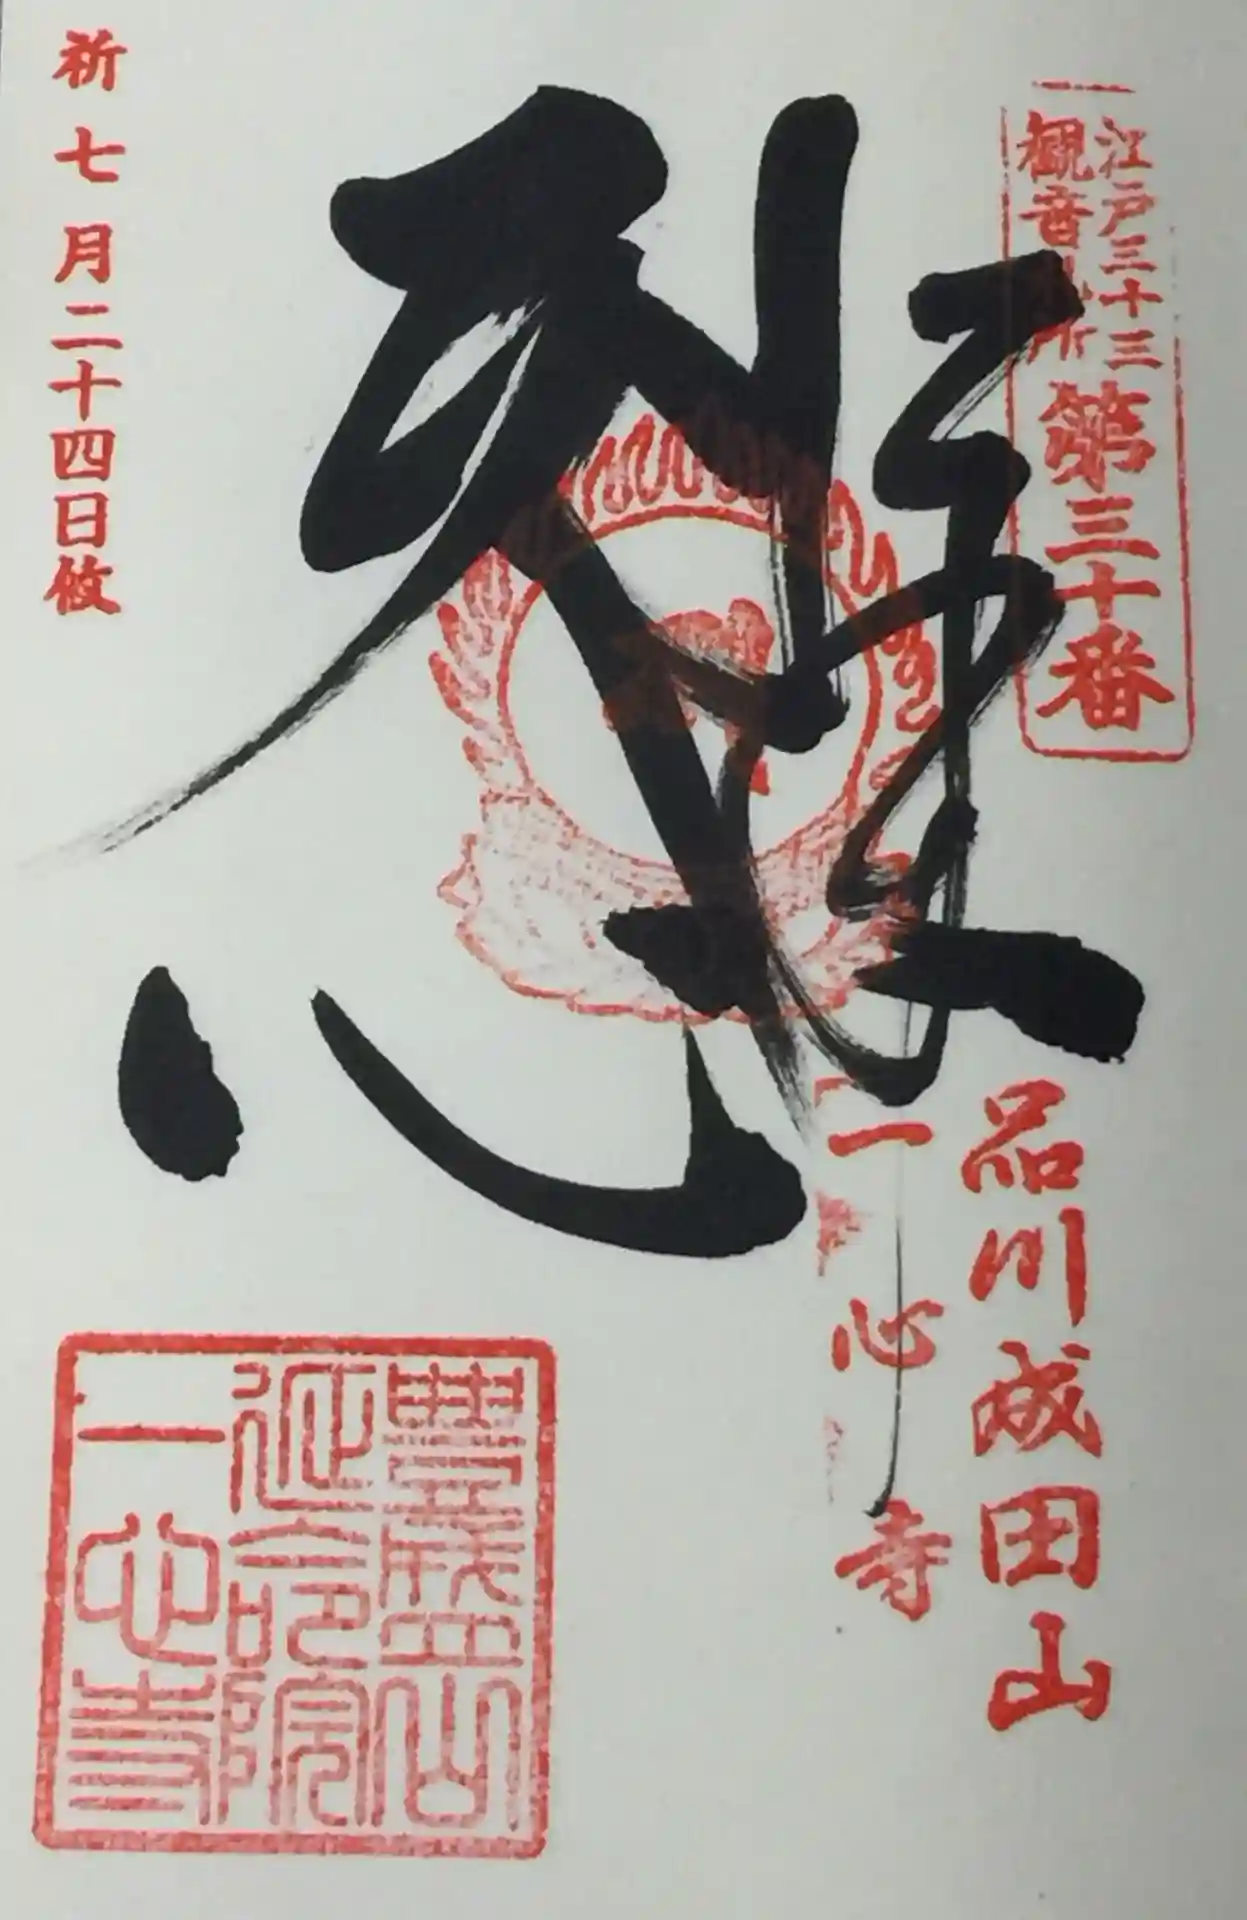 江戸三十三
観音札所
第三十番
品川成田山
一心寺
祈七月二十四日攸
豐盛山
延命院
一心寺